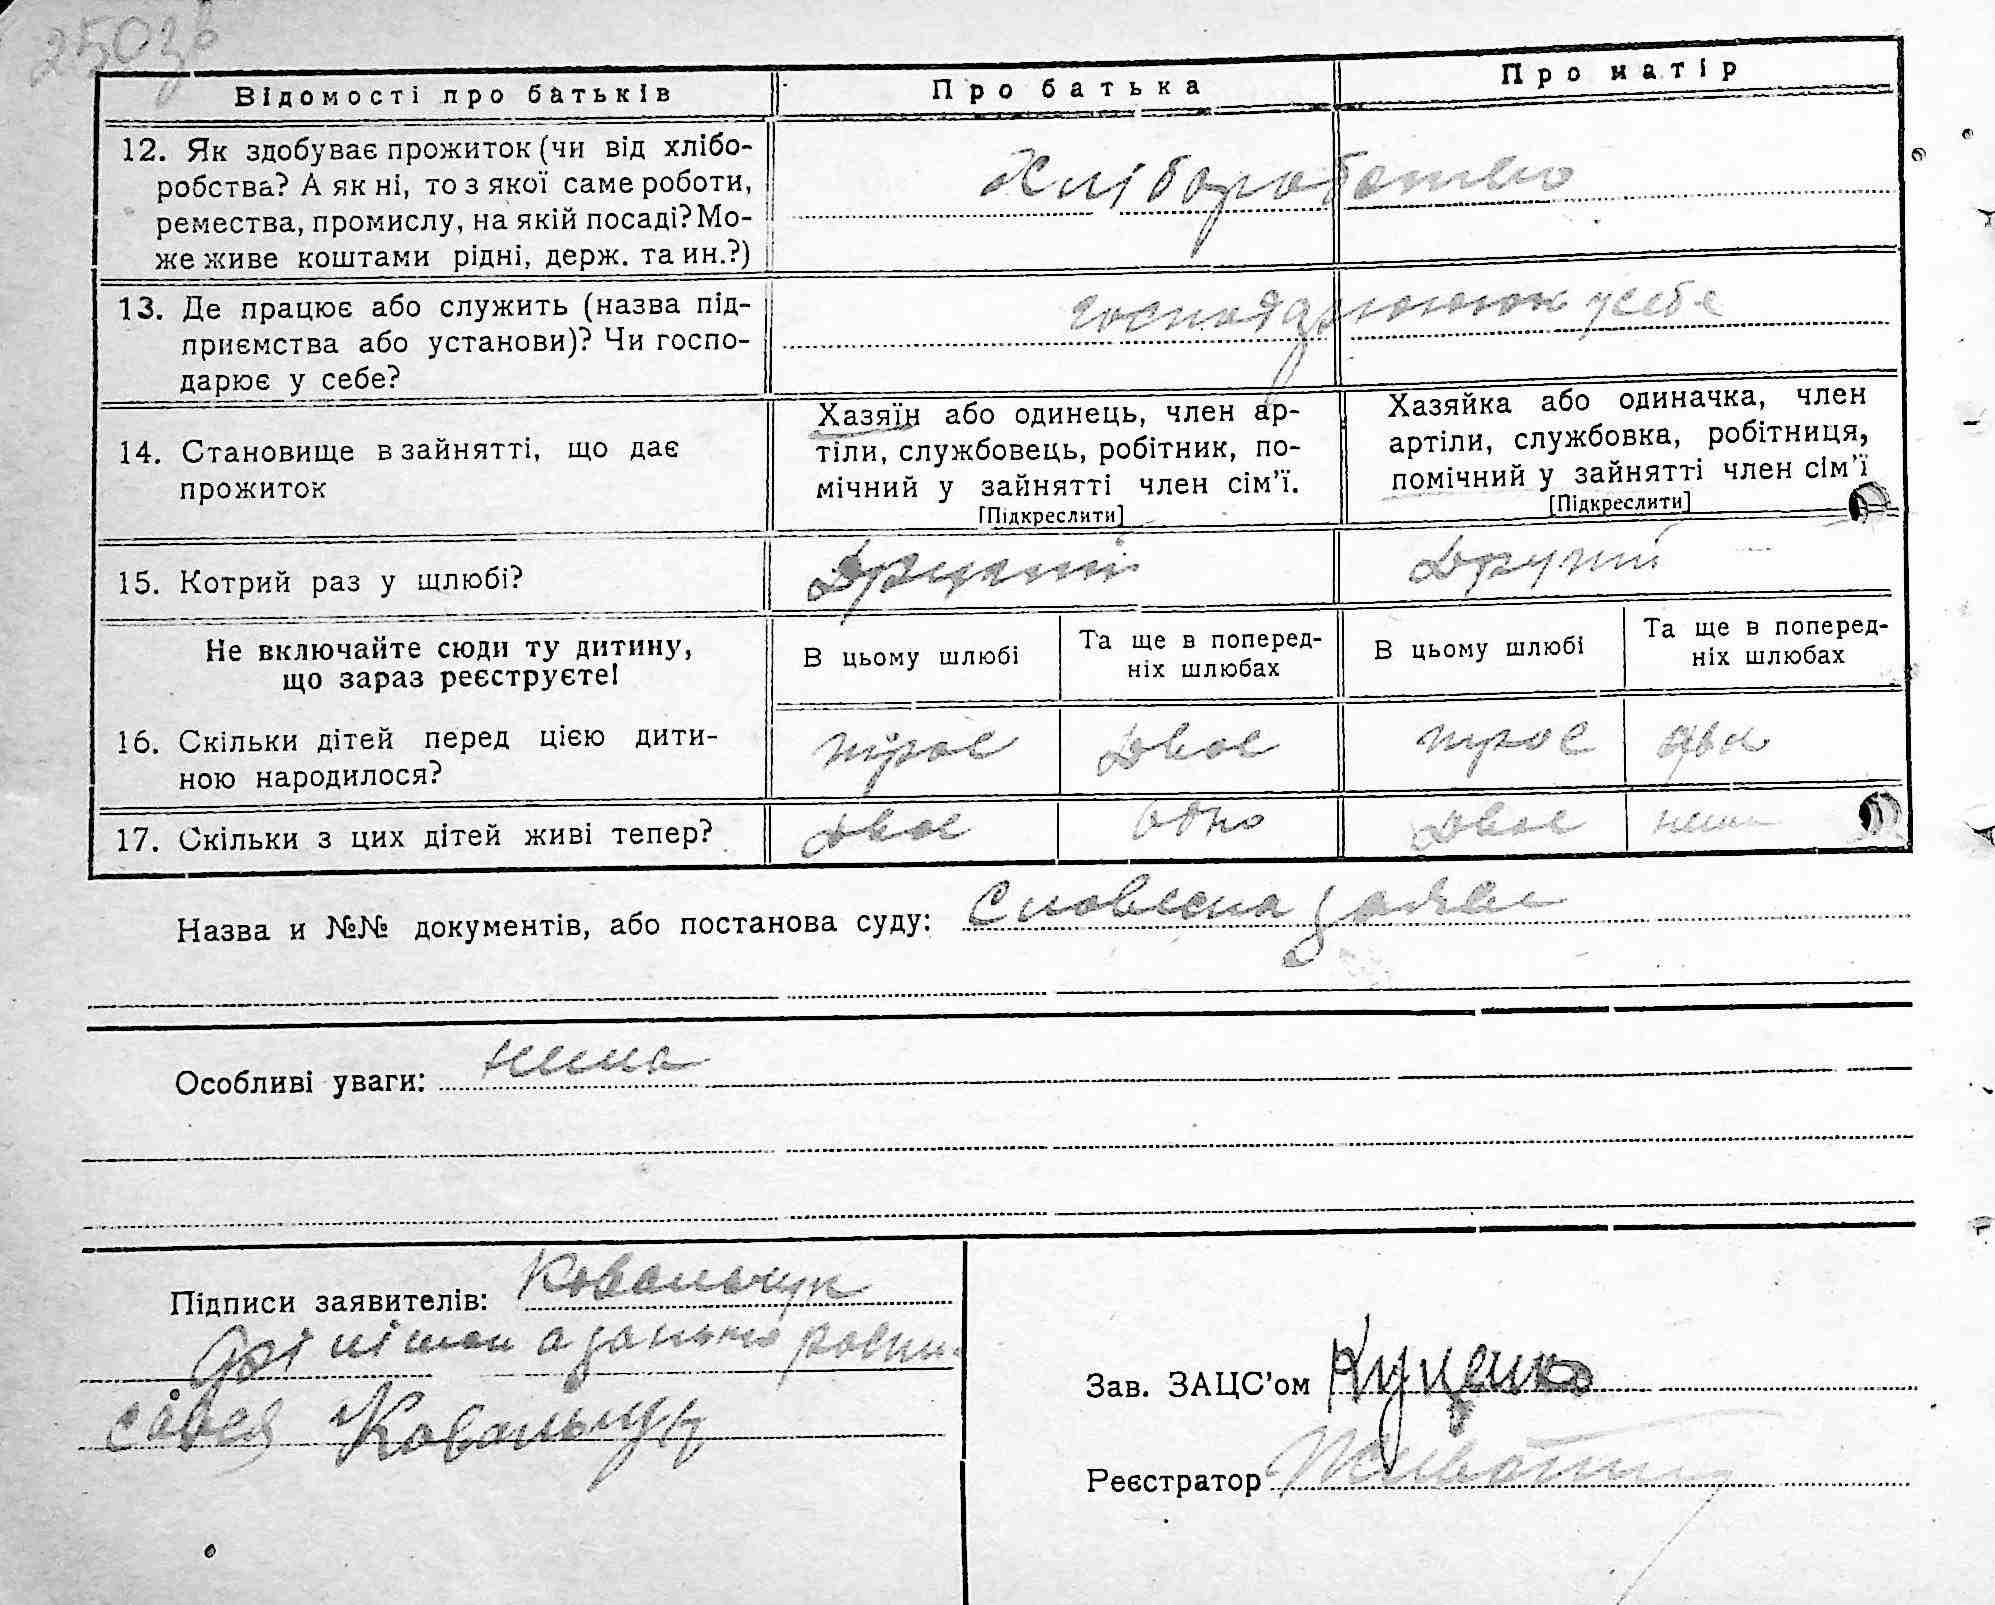 250зв
Відомості про батьків
Про батька
Про матір
12. Як здобуває прожиток (чи від хлібо-
робства? А як ні, то з якої саме роботи,
ремества, промислу, на якій посаді? Мо-
же живе коштами рідні, держ. та ин.?)
Хліборобство
13. Де працює або служить (назва під-
приємства або установи)? Чи госпо-
дарює у себе?
у себе
14. Становище в зайнятті, що дає
прожиток
Хазяїн або одинець, член ар-
тіли, службовець, робітник, по-
мічний у зайнятті член сім'ї.
[Підкреслити]
Хазяйка або одиначка, член
артіли, службовка, робітниця,
помічний у зайнятті член сім'ї
[Підкреслити]
15. Котрий раз у шлюбі?
Другий
Другий
Не включайте сюди ту дитину,
що зараз реєструєте!
В цьому шлюбі
Та ще в поперед-
ніх шлюбах
В цьому шлюбі
Та ще в поперед-
ніх шлюбах
16. Скільки дітей перед цією дити-
ною народилося?
троє
Двоє
троє
два
17. Скільки з цих дітей живі тепер?
Двоє
одно
Двоє
нема
Назва и №№ документів, або постанова суду: Словесна заява
Особливі уваги: нема
Підписи заявителів: Ковальчук
Ковальчук
Зав. ЗАЦС'ом Куценко
Реєстратор